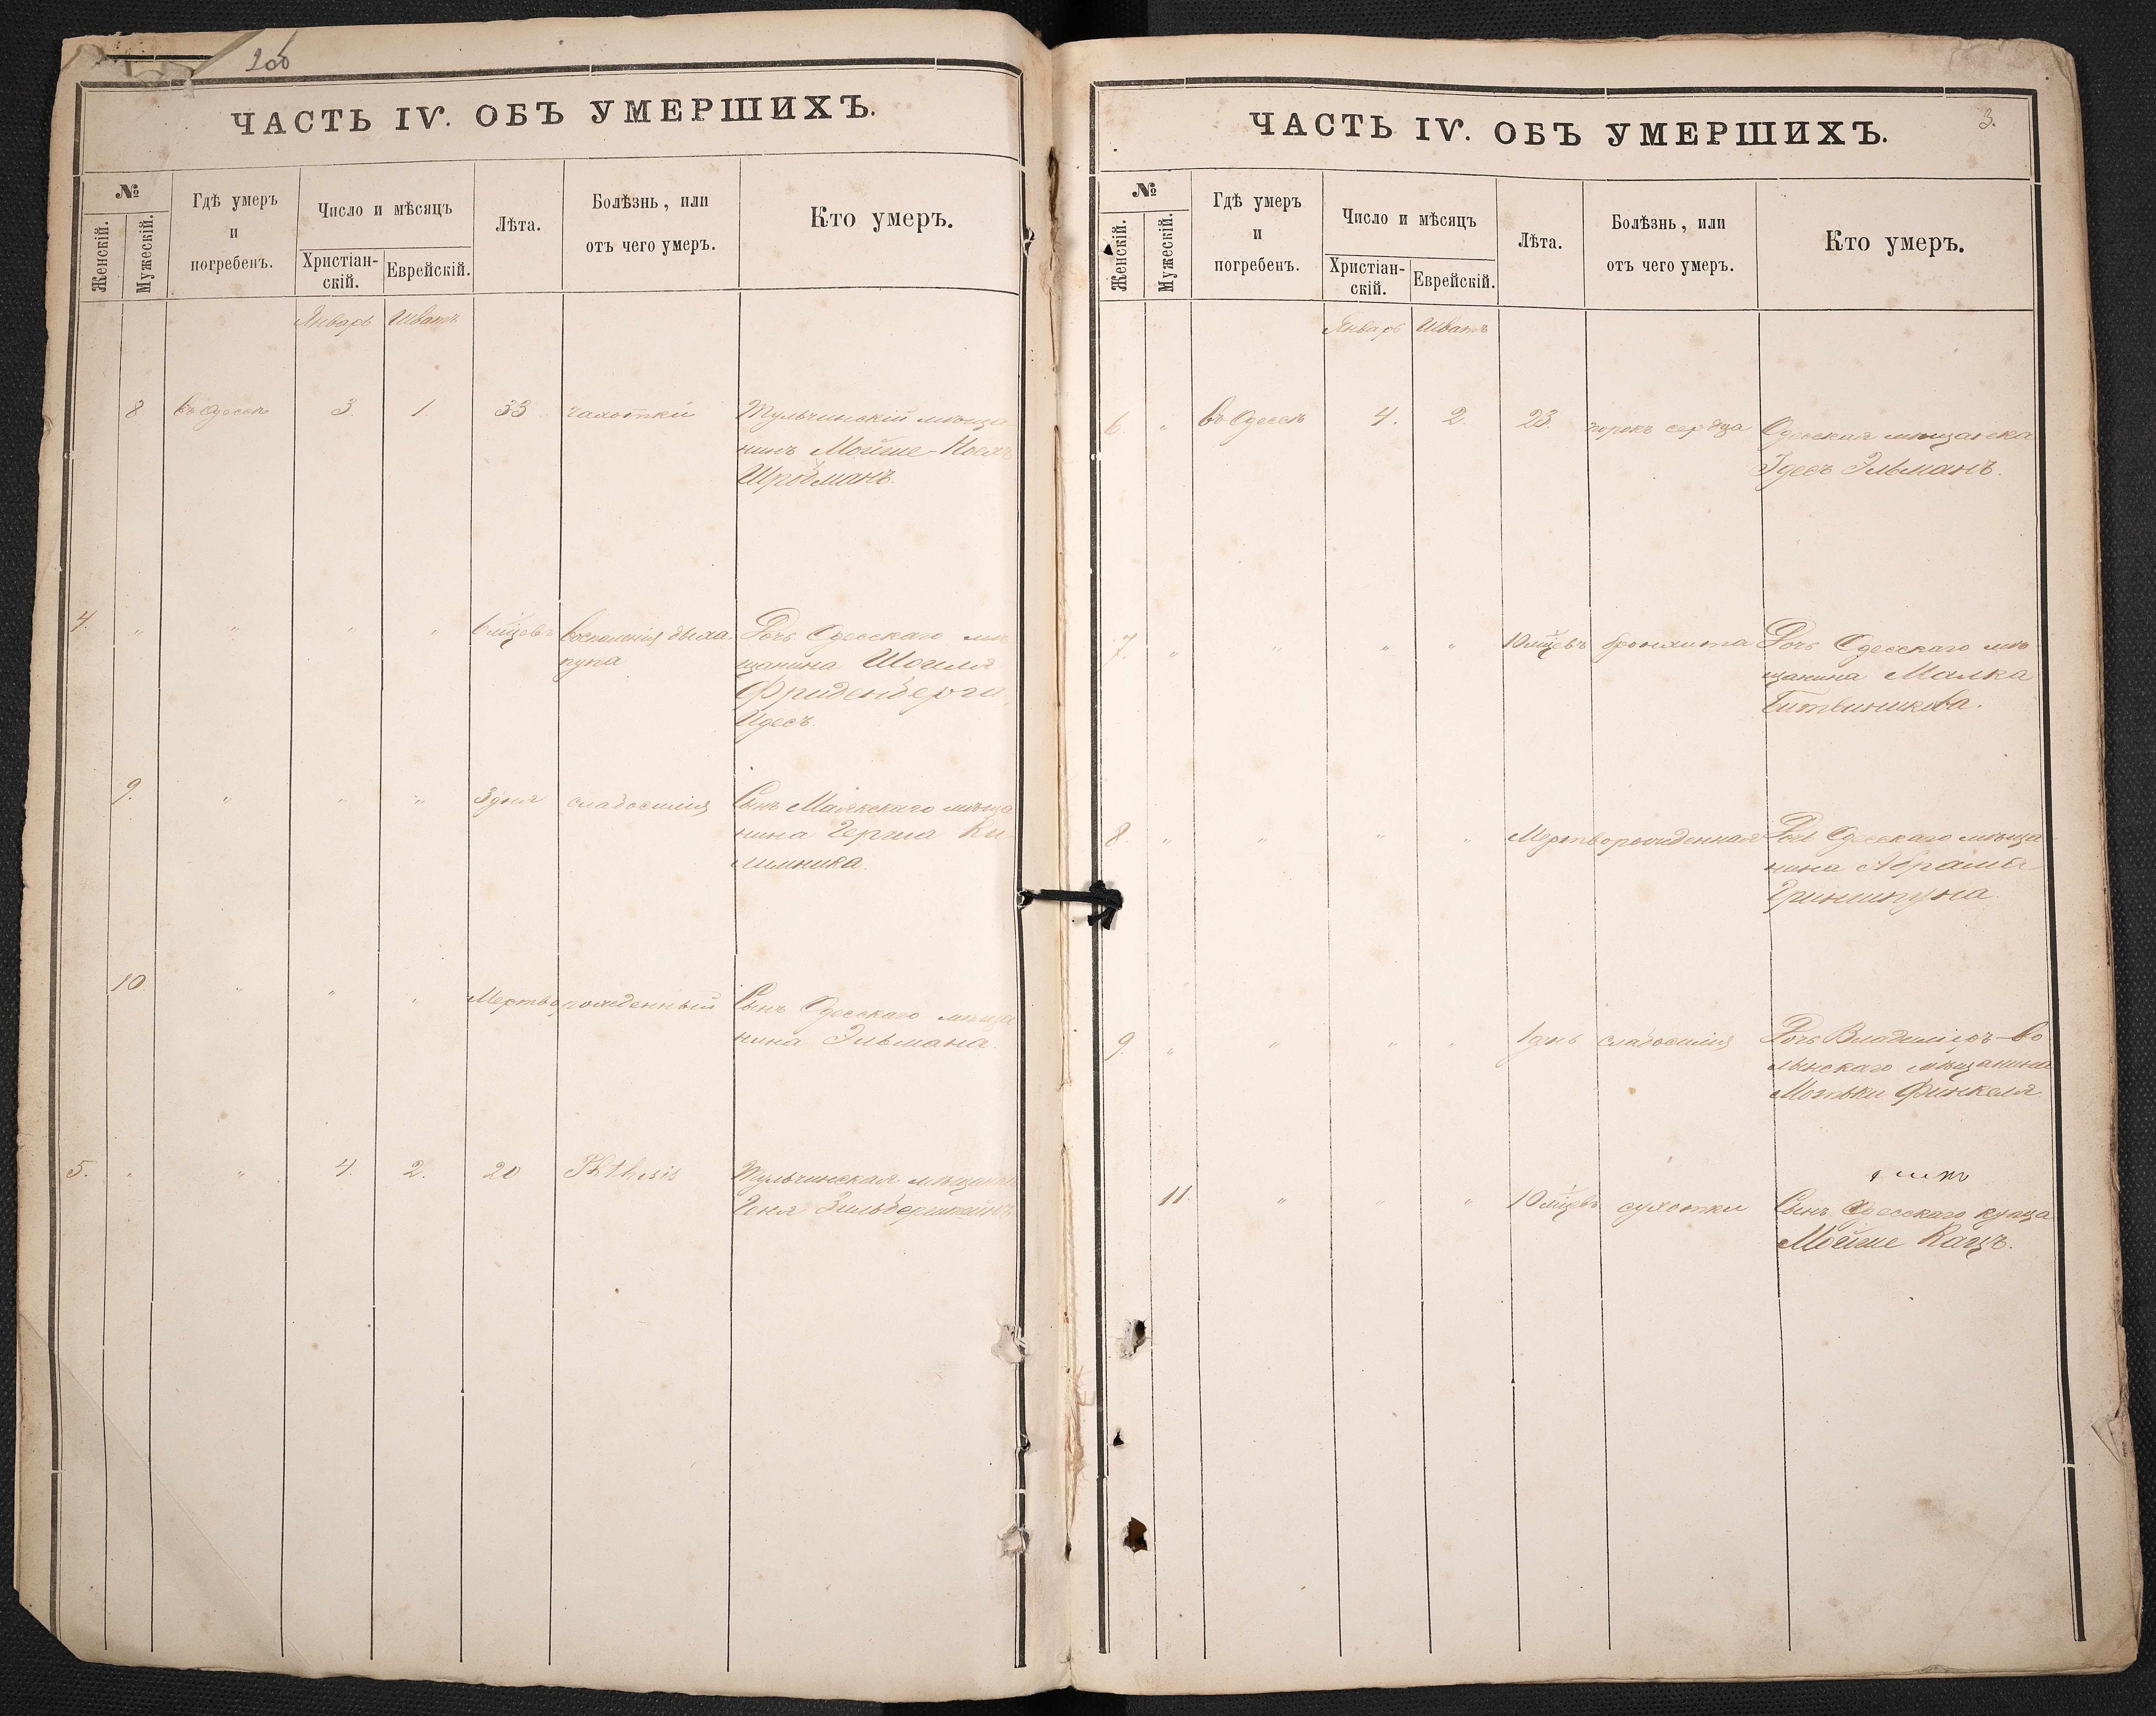 2об
ЧАСТЬ IV. ОБЪ УМЕРШИХЪ.
№
Женскій.
Мужескій.
Гдѣ умеръ
и
погребенъ.
Число и мѣсяцъ
Христіан-
скій.
Еврейскій.
Лѣта.
Болѣзнь, или
отъ чего умеръ.
Кто умеръ.
Январь Шватъ
8 въ Одессѣ 3. 1. 33 чахотки Тульчинскій мѣща
нинъ Мойше-Ноехъ
Шройманъ.
4. „ „ „ „ 6 мцевъ воспаленія дыха. Дочь Одесскаго мѣ
щанина Шоеля
Фриденберга
Идесъ.
9. „ „ „ 3 дня слабосилія Сынъ Маякскаго мѣща
нина Герша Ки-
лимника
10 „ „ „ Мертворожденный Сынъ Одесскаго мѣща
нина Эльмана.
5. „ „ 4. 2. 20 Phthisis Тульчинская мѣщанка
Геня Зильберштейнъ
ЧАСТЬ IV. ОБЪ УМЕРШИХЪ.
3.
№
Женскій.
Мужескій.
Гдѣ умеръ
и
погребенъ.
Число и мѣсяцъ
Христіан-
скій.
Еврейскій.
Лѣта.
Болѣзнь, или
отъ чего умеръ.
Кто умеръ.
Январь Шватъ
6. „ въ Одессѣ 4. 2. 23. порокъ сердца Одесская мѣщанка
Эльманъ.
7. „ „ „ „ 10 мцевъ бронхита Дочь Одесскаго мѣ
щанина Малка
8. „ „ „ „ Мертворожденная Дочь Одесскаго мѣща
нина Абрама
Гриншпуна.
9. „ „ „ „ 1 день слабосилія Дочь Владиміръ-Во
лынскаго мѣщанина
Мотьки Финкеля
11. „ „ „ 10 мцевъ сухотки Сынъ Одесскаго купца
Мойше Кацъ.